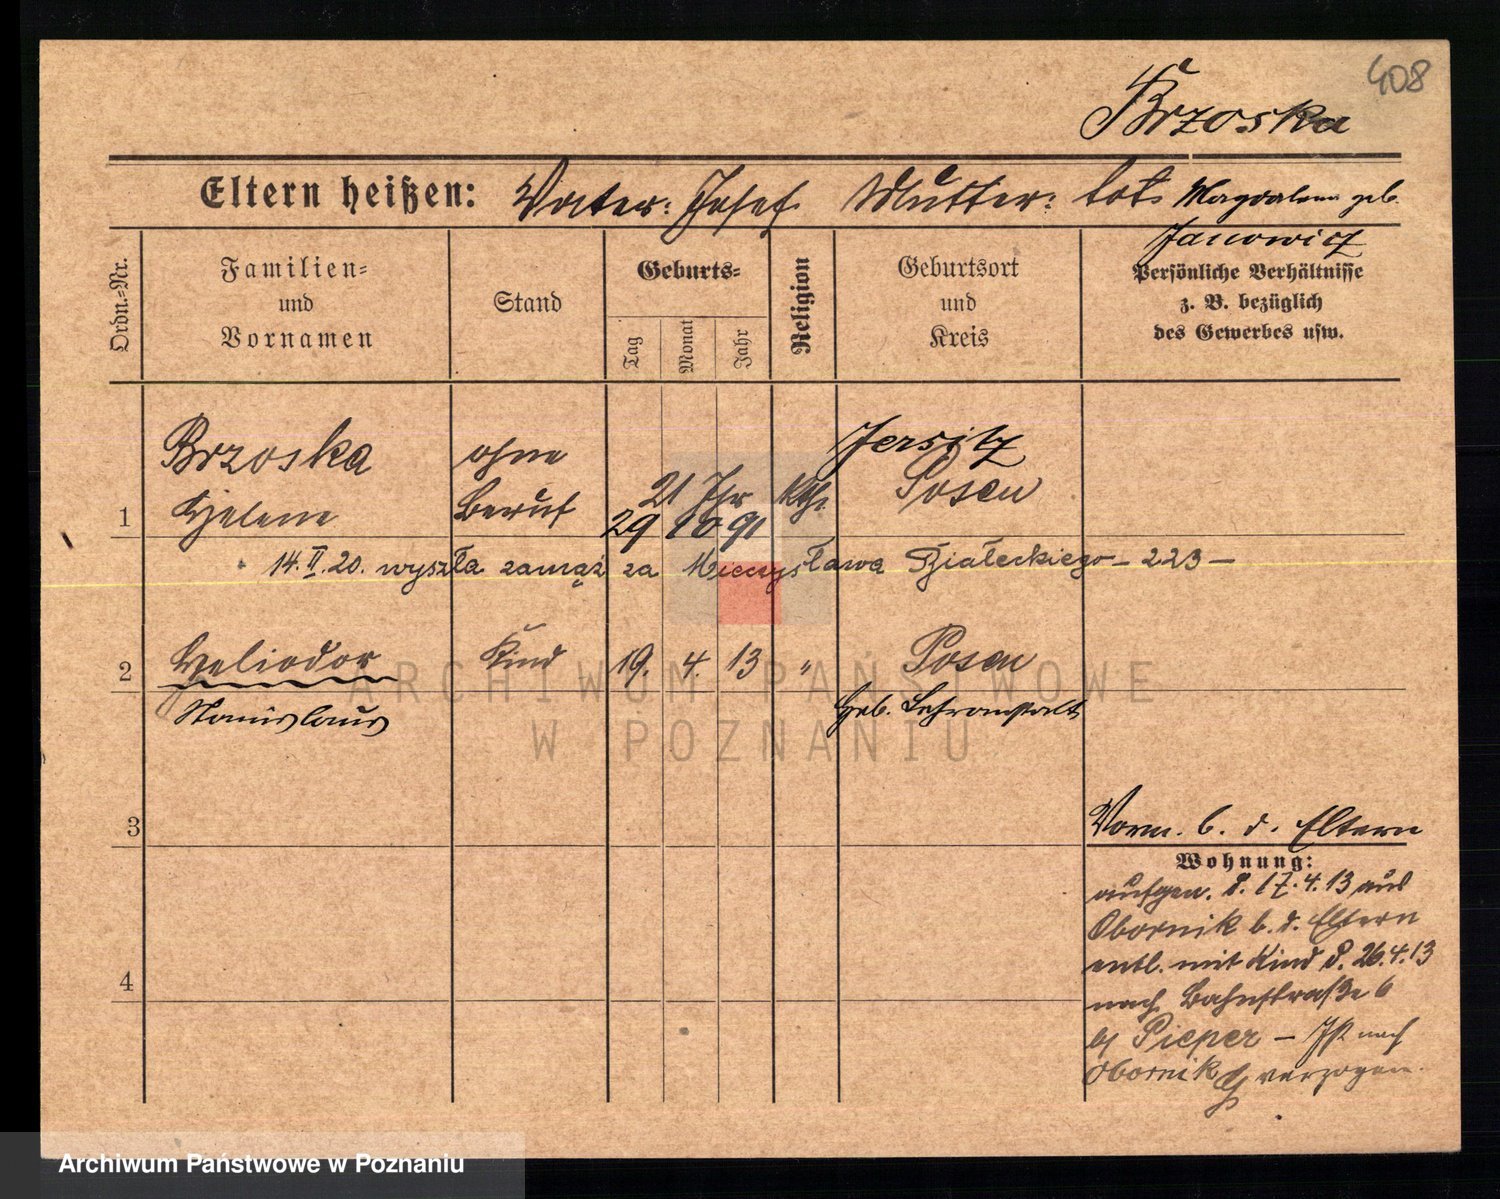 408
Brzoska
Eltern heißen: Vater: Josef Mutter: tot. Magdalena geb.
Janowicz
Ordn.=Nr.
Familien=
und
Vornamen
Stand
Geburts=
Tag
Monat
Jahr
Religion
Geburtsort
und
Kreis
Persönliche Verhältnisse
z. B. bezüglich
des Gewerbes usw.
Jersitz
Brzoska ohne
21 Jhr kth. Posen
1 Helene Beruf 29 10 91
14.II.20. wyszła zamąż za Mieczysława Działeckiego – 223 –
2 Heliodor Kind 19. 4. 13 " Posen
Stanislaus Heb. Lehranstalt
3
Vorm. b. d. Eltern
Wohnung:
aufgen. d. 17.4.13 aus
Obornik b. d. Eltern
entl. mit Kind d. 26.4.13
4
nach Bahnstraße 6
b/ Pieper – Ist nach
Obornik verzogen.
ARCHIWUM PAŃSTWOWE
W POZNANIU
Archiwum Państwowe w Poznaniu